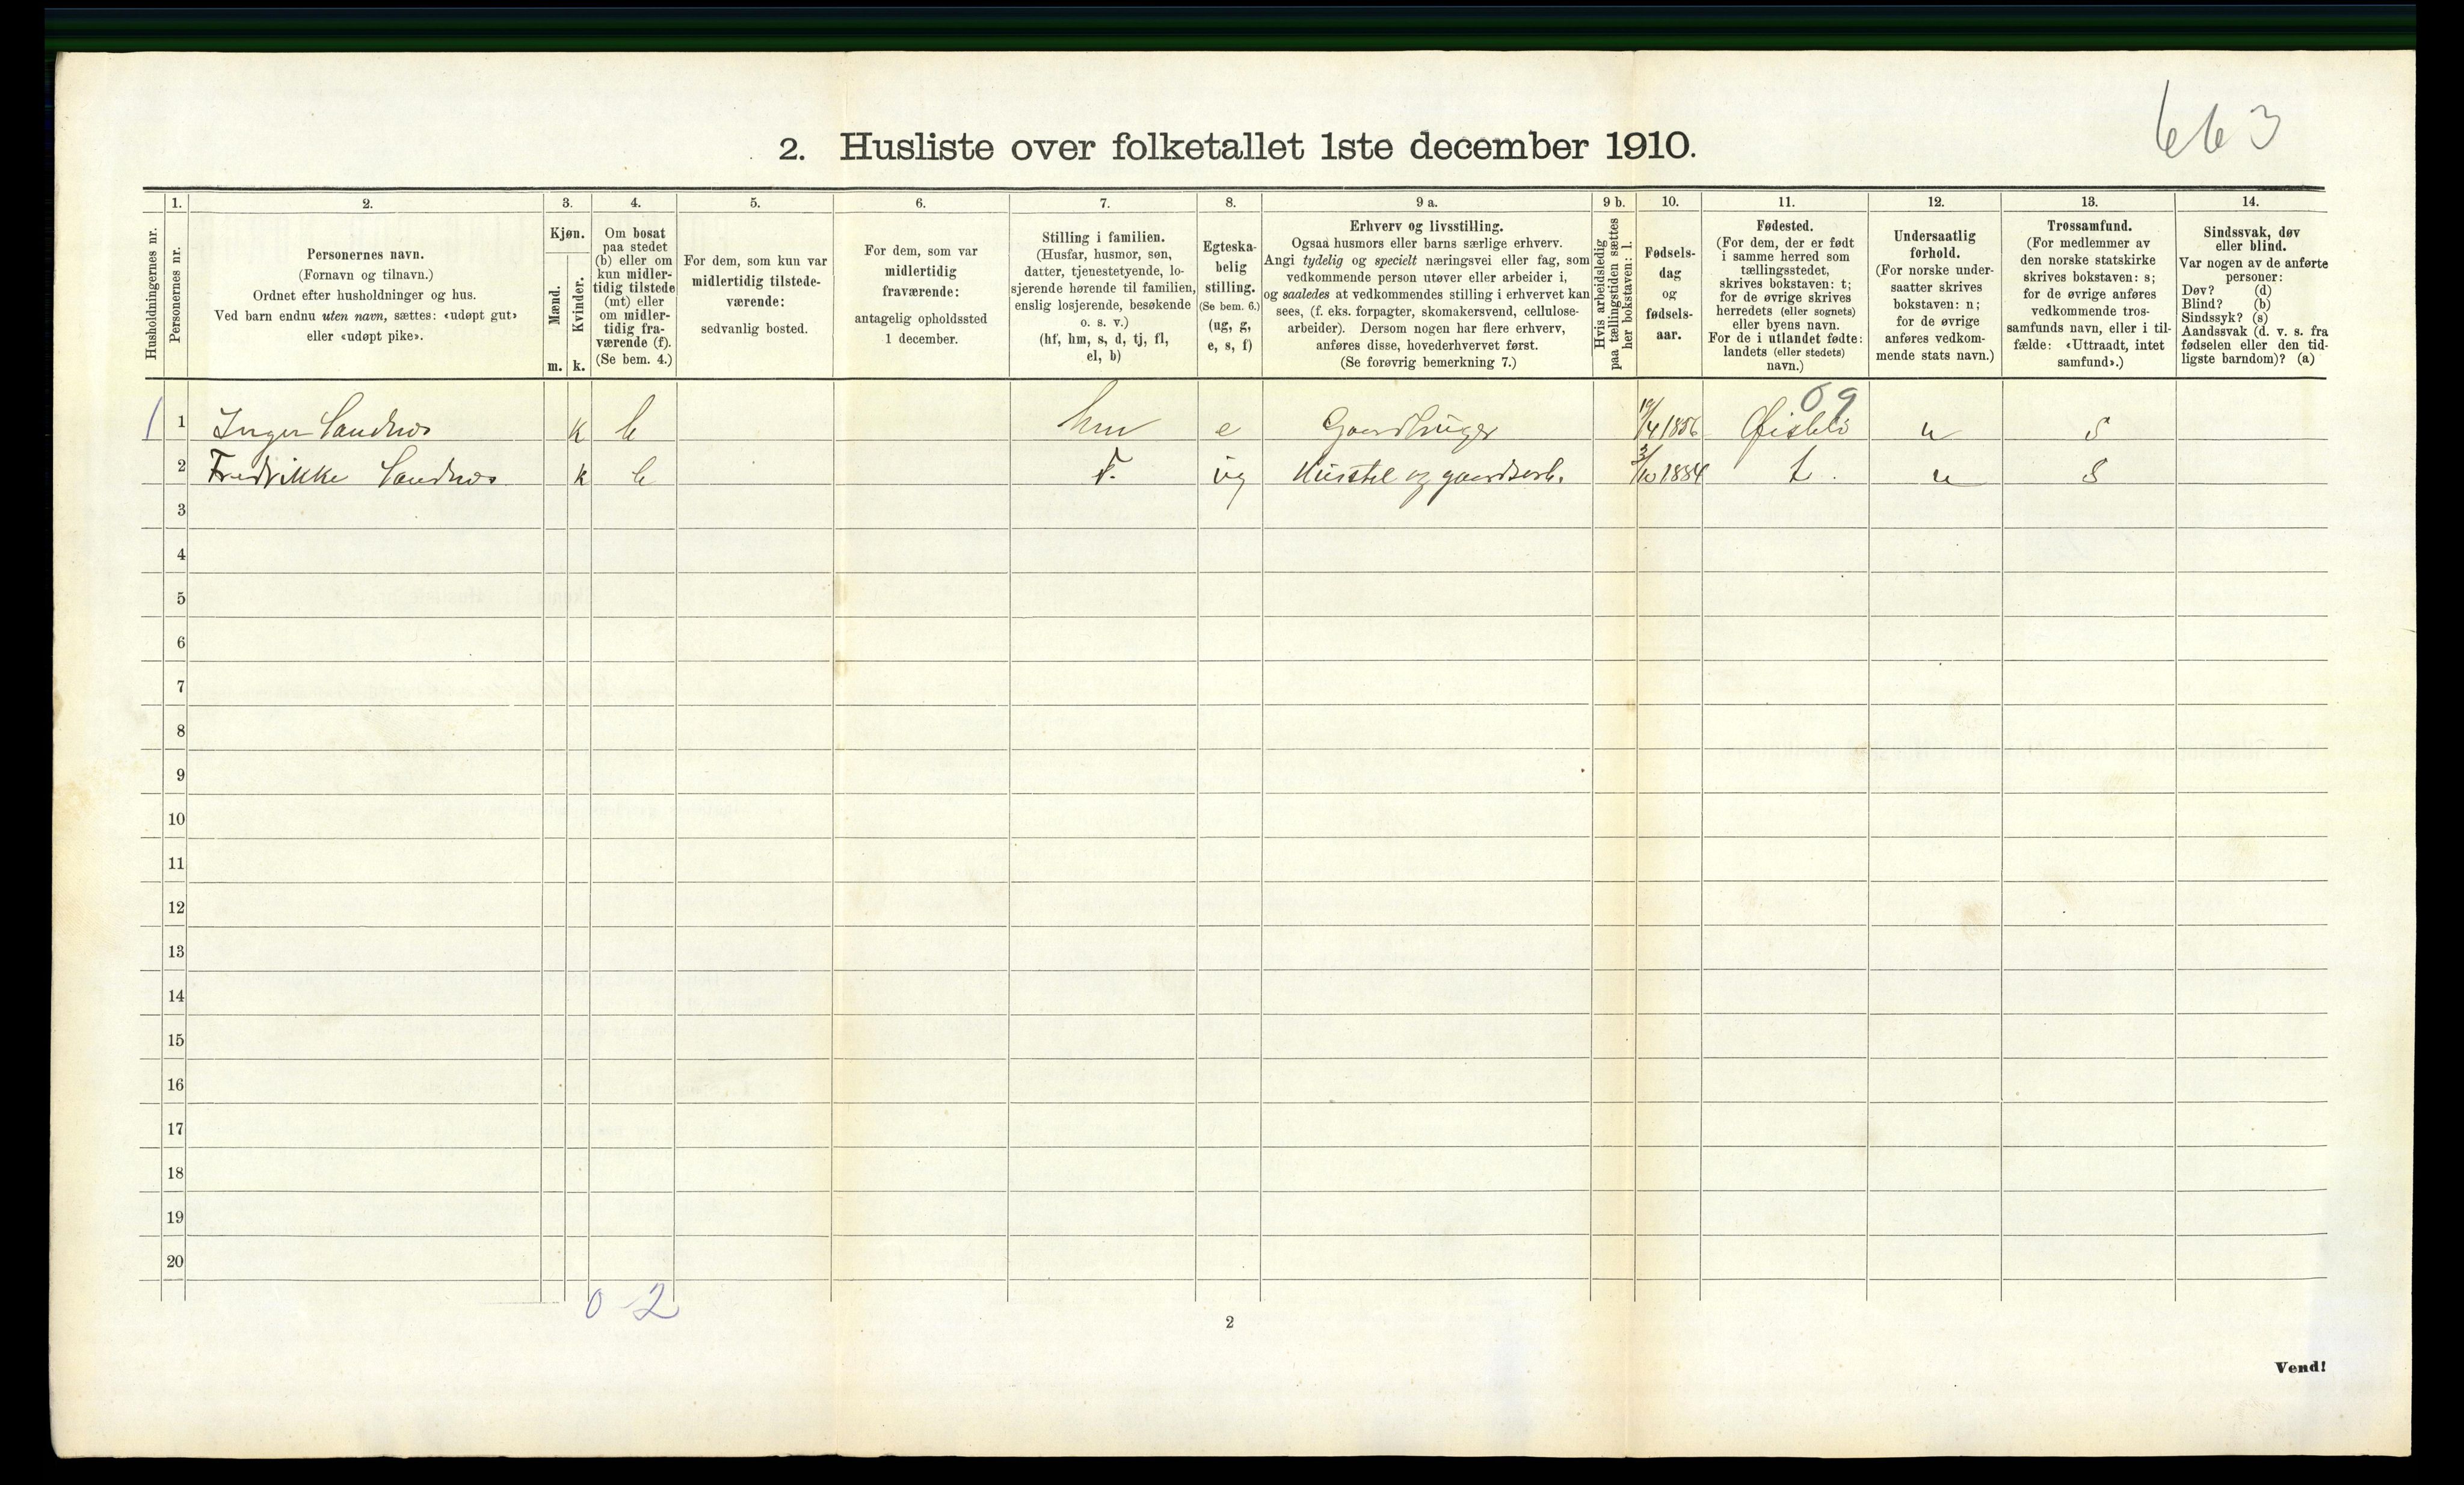 663
2. Husliste over folketallet 1ste december 1910.
Husholdningernes nr.
1.
Personernes nr.
2.
Personernes navn.
(Fornavn og tilnavn.)
Ordnet efter husholdninger og hus.
Ved barn endnu uten navn, sættes: «udøpt gut»
eller «udøpt pike».
3.
Kjøn.
Mænd.
Kvinder.
m. k.
4.
Om bosat
paa stedet
(b) eller om
kun midler-
tidig tilstede
(mt) eller
om midler-
tidig fra-
værende (f).
(Se bem. 4.)
5.
For dem, som kun var
midlertidig tilstede-
værende:
sedvanlig bosted.
6.
For dem, som var
midlertidig
fraværende:
antagelig opholdssted
1 december.
7.
Stilling i familien.
(Husfar, husmor, søn,
datter, tjenestetyende, lo-
sjerende hørende til familien,
enslig losjerende, besøkende
o. s. v.)
(hf, hm, s, d, tj, fl,
el, b)
8.
Egteska-
belig
stilling.
(Se bem. 6.)
(ug, g,
e, s, f)
9 a.
Erhverv og livsstilling.
Ogsaa husmors eller barns særlige erhverv.
Angi tydelig og specielt næringsvei eller fag, som
vedkommende person utøver eller arbeider i,
og saaledes at vedkommendes stilling i erhvervet kan
sees, (f. eks. forpagter, skomakersvend, cellulose-
arbeider). Dersom nogen har flere erhverv,
anføres disse, hovederhvervet først.
(Se forøvrig bemerkning 7.)
9 b.
Hvis arbeidsledig
paa tællingstiden sættes
her bokstaven: l.
10.
Fødsels-
dag
og
fødsels-
aar.
11.
Fødested.
(For dem, der er født
i samme herred som
tællingsstedet,
skrives bokstaven: t;
for de øvrige skrives
herredets (eller sognets)
eller byens navn.
For de i utlandet fødte:
landets (eller stedets)
navn.)
12.
Undersaatlig
forhold.
(For norske under-
saatter skrives
bokstaven: n;
for de øvrige
anføres vedkom-
mende stats navn.)
13.
Trossamfund.
(For medlemmer av
den norske statskirke
skrives bokstaven: s;
for de øvrige anføres
vedkommende tros-
samfunds navn, eller i til-
fælde: «Uttraadt, intet
samfund».)
14.
Sindssvak, døv
eller blind.
Var nogen av de anførte
personer:
Døv? (d)
Blind? (b)
Sindssyk? (s)
Aandssvak (d. v. s. fra
fødselen eller den tid-
ligste barndom)? (a)
09
1 1 Inger Sandnes k b hm e Gaardbruger 19/4 1856 Øislebö n s
2 Fredrikke Sandnes k b F. ug Husstel og gaardsarb. 3/10 1884 t. n s
3
4
5
6
7
8
9
10
11
12
13
14
15
16
17
18
19
20
0-2
2
Vend!